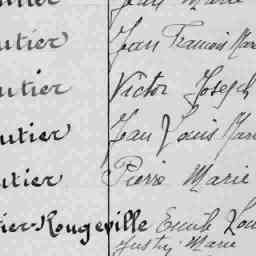 Jean Marie
utier Jean Francois Mar
utier Victor Joseph
utier Jean Louis Mar
utier Pierre Marie
ier-Rougeville Emile Lou
Marie